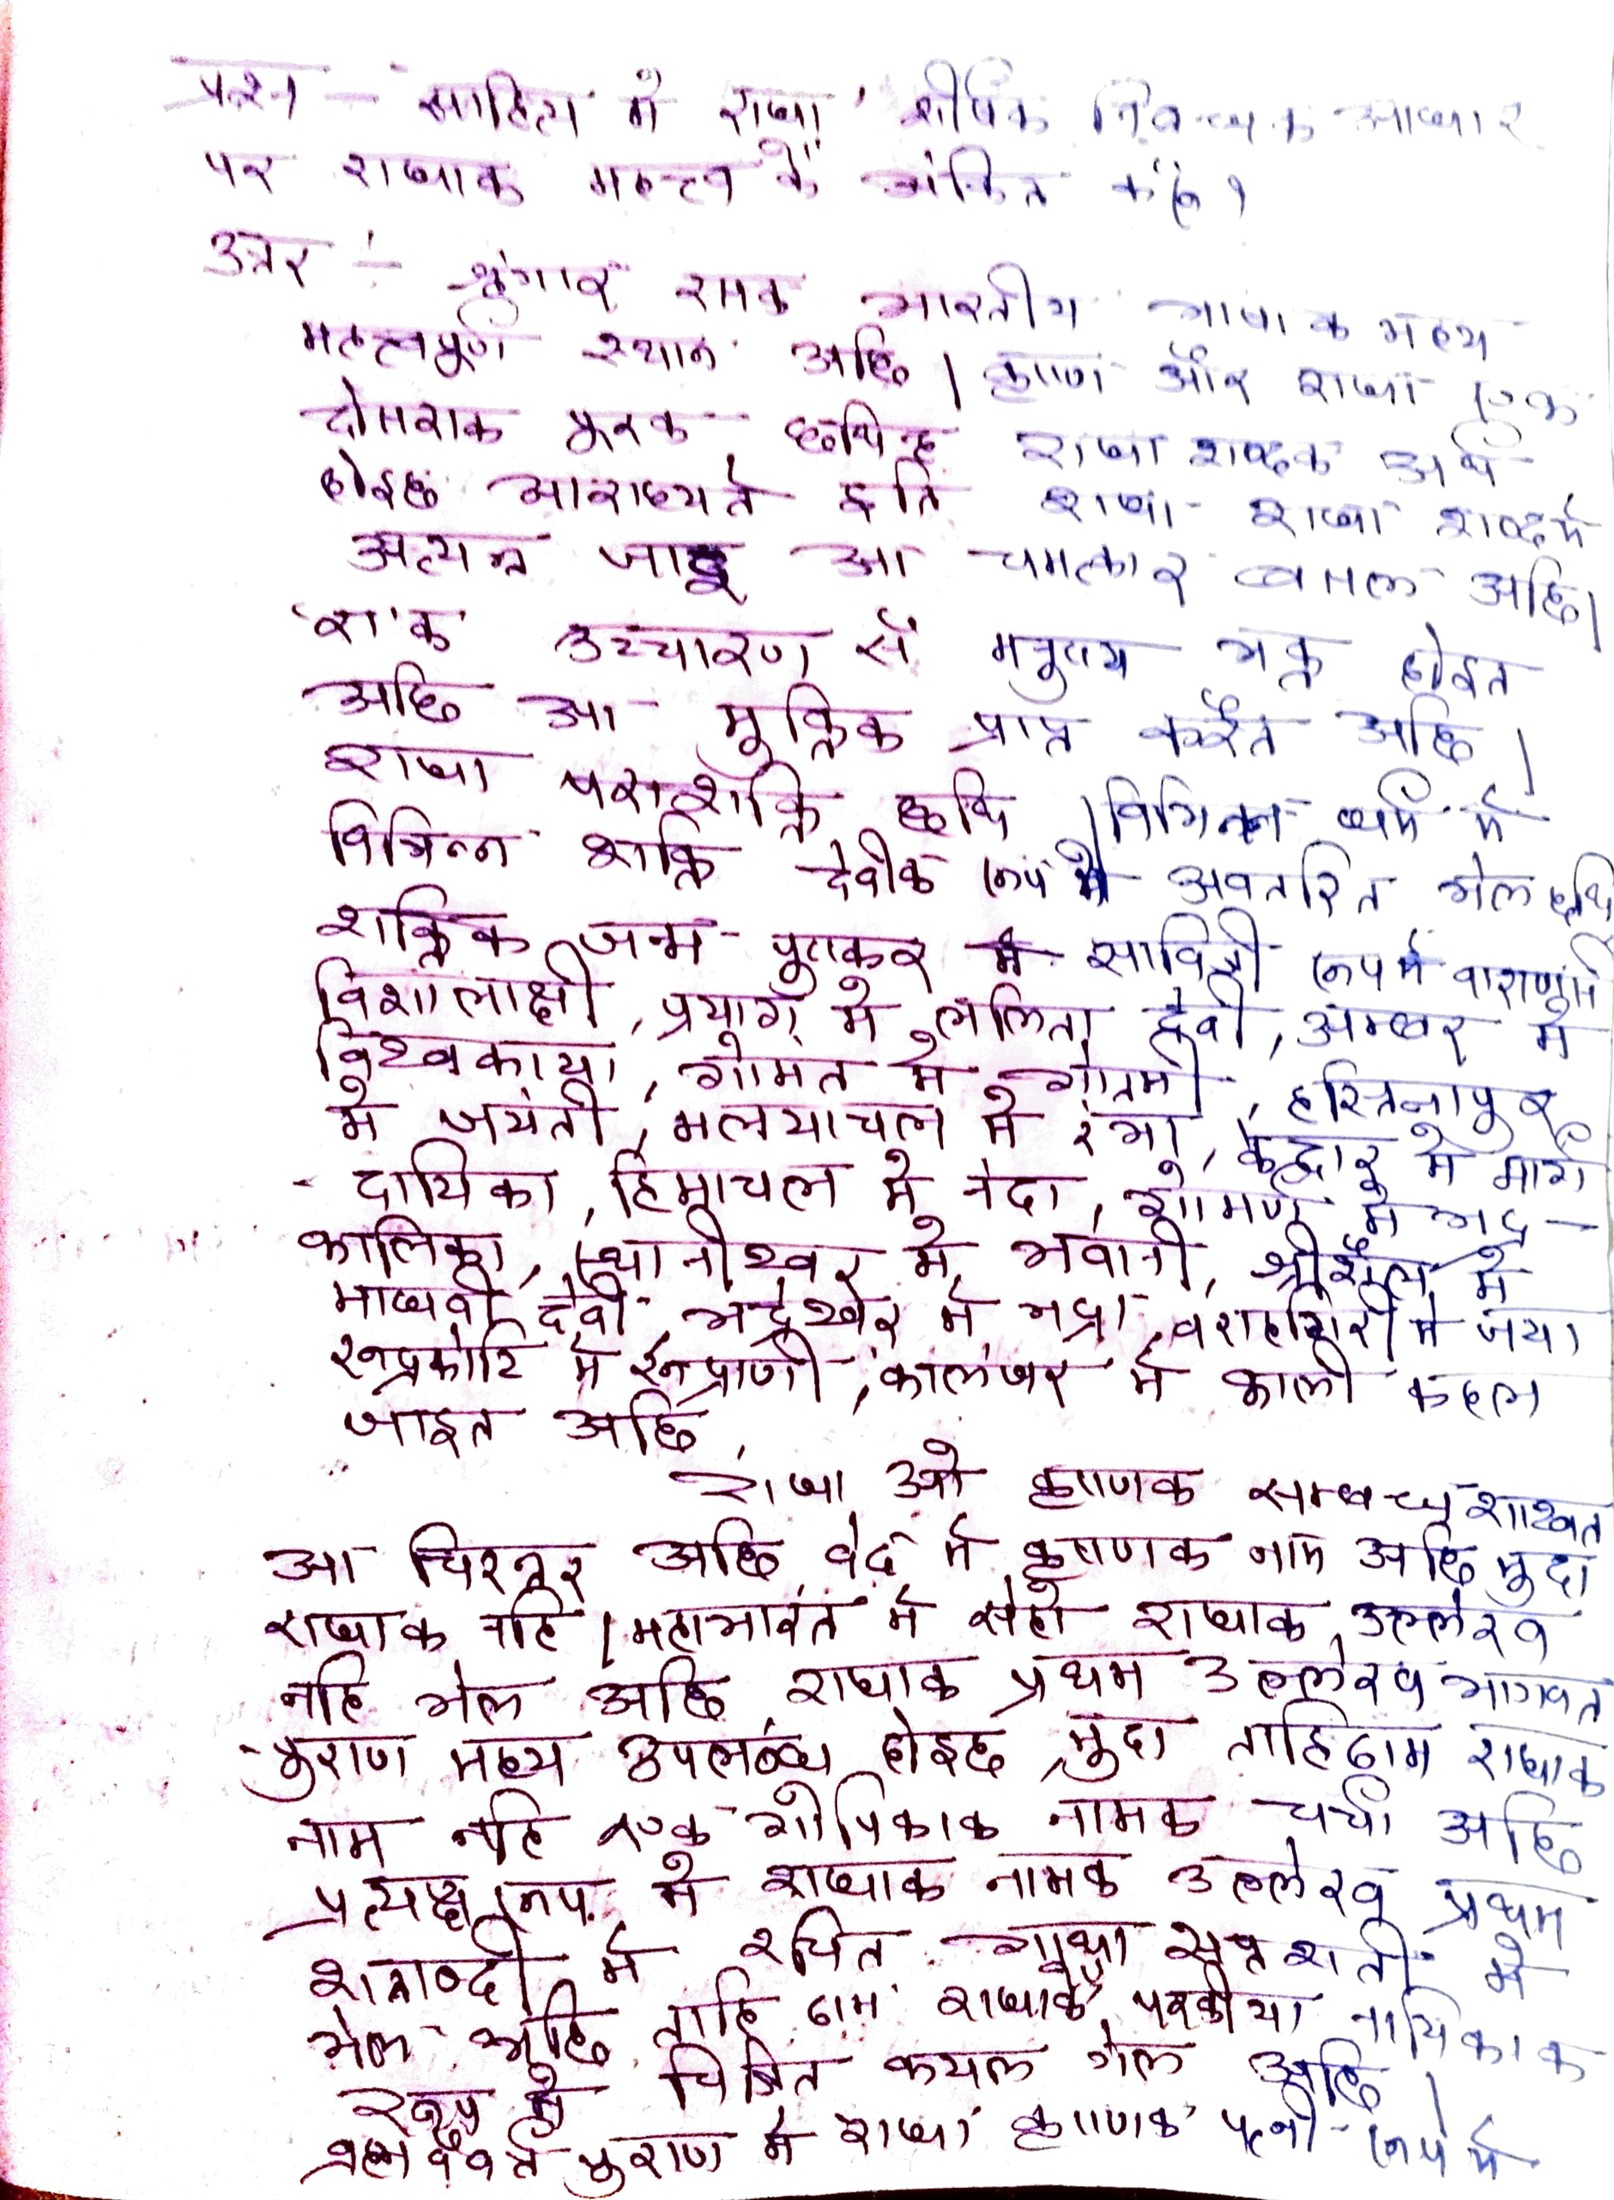 प्रश्न – साहित्य मे राधा' शीर्षक निबन्धक आधार
पर राधाक महत्त्व कें अंकित करू।
उत्तर :– श्रृंगार रसक भारतीय भाषाक मध्य
महत्त्वपूर्ण स्थान अछि। कृष्ण और राधा एक
दोसराक पूरक छथिन्ह राधा शब्दक अर्थ
होइछ आराध्यते इति राधा- राधा शब्दमे
अत्यन्त जादू आ चमत्कार बसल अछि।
'रा'क' उच्चारण सँ मनुष्य भक्त होइत
अछि आ मुक्तिक प्राप्त करैत अछि।
राधा पराशक्ति छथि। विभिन्न धर्म मे
विभिन्न शक्ति देवीक रूप मे अवतरित भेल छथि
शक्तिक जन्म पुष्कर मे सावित्री रूपमे वाराणसी
विशालाक्षी, प्रयाग मे ललिता देवी, अम्बर मे
विश्वकाया, गोमत मे गोतमी, हस्तिनापुर
मे जयंती, मलयाचल मे रंभा, केद्वार मे मार्ग
- दायिका, हिमाचल मे नंदा, गोमर्ण मे भद्र –
कालिका, स्थानीश्वर मे भवानी, श्रीशैल मे
माधवी देवी, भद्रेश्वर मे भद्रा, वराहगिरी मे जया
रूप्रकोटि मे रूप्राणी, कालंजर मे काली कहल
जाइत अछि,
राधा ओ कृष्णक सम्बन्ध शाश्वत
आ चिरन्तर अछि, वेद मे कृष्णक नाम अछि मुदा
राधाक नहि। महाभारत मे सेहो राधाक उल्लेख
नहि भेल अछि, राधाक प्रथम उल्लेख भागवत
- पुराण मध्य उपलब्ध होइछ, मुदा ताहिठाम राधाक
नाम नहि एक गोपिकाक नामक चर्चा अछि
प्रत्यक्ष रूप मे राधाक नामक उल्लेख प्रथम
शताब्दी मे रचित गाथा सप्तशती मे
भेल अछि, ताहि ठाम राधाकेँ परकीया नायिकाक
रूप मे चित्रित कयल गेल अछि।
ब्रह्मवैवर्त पुराण मे राधा कृष्णक पत्नी रूप मे